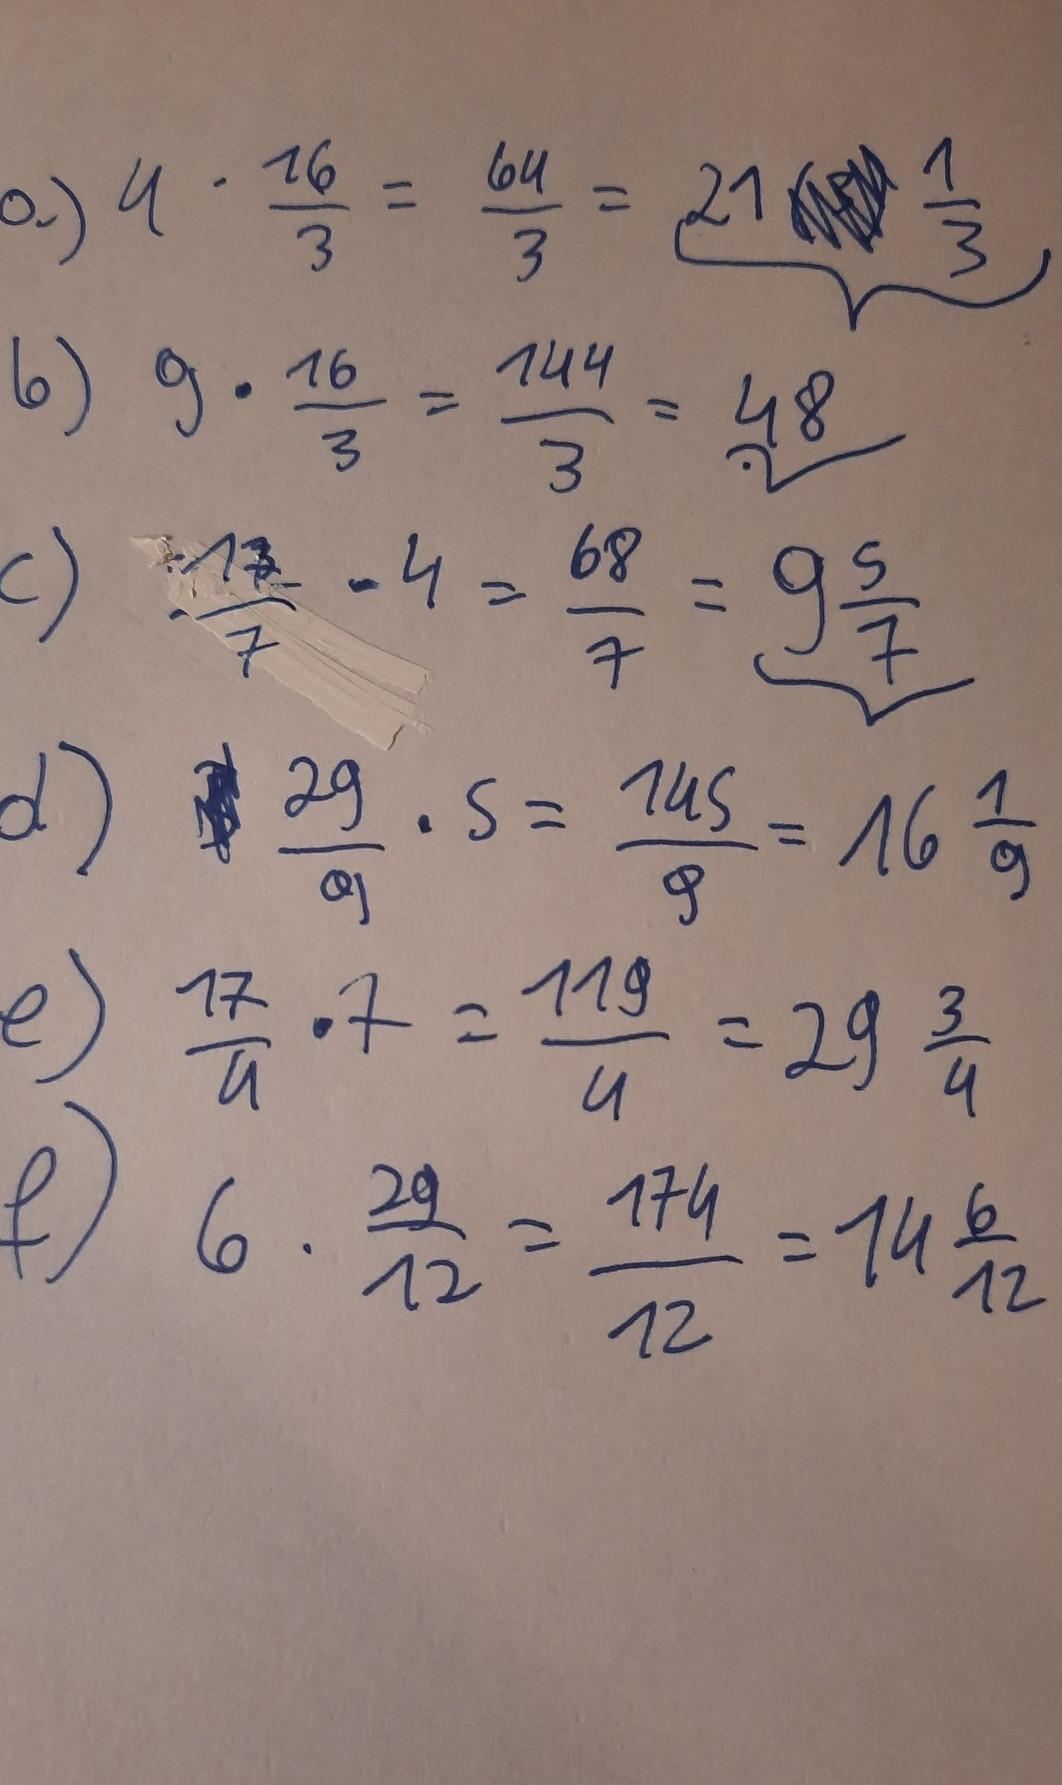 a) 4 · 16/3 = 64/3 = 21 1/3
b) 9 · 16/3 = 144/3 = 48
c) 17/7 · 4 = 68/7 = 9 5/7
d) 29/9 · 5 = 145/9 = 16 1/9
e) 17/4 · 7 = 119/4 = 29 3/4
f) 6 · 29/12 = 174/12 = 14 6/12